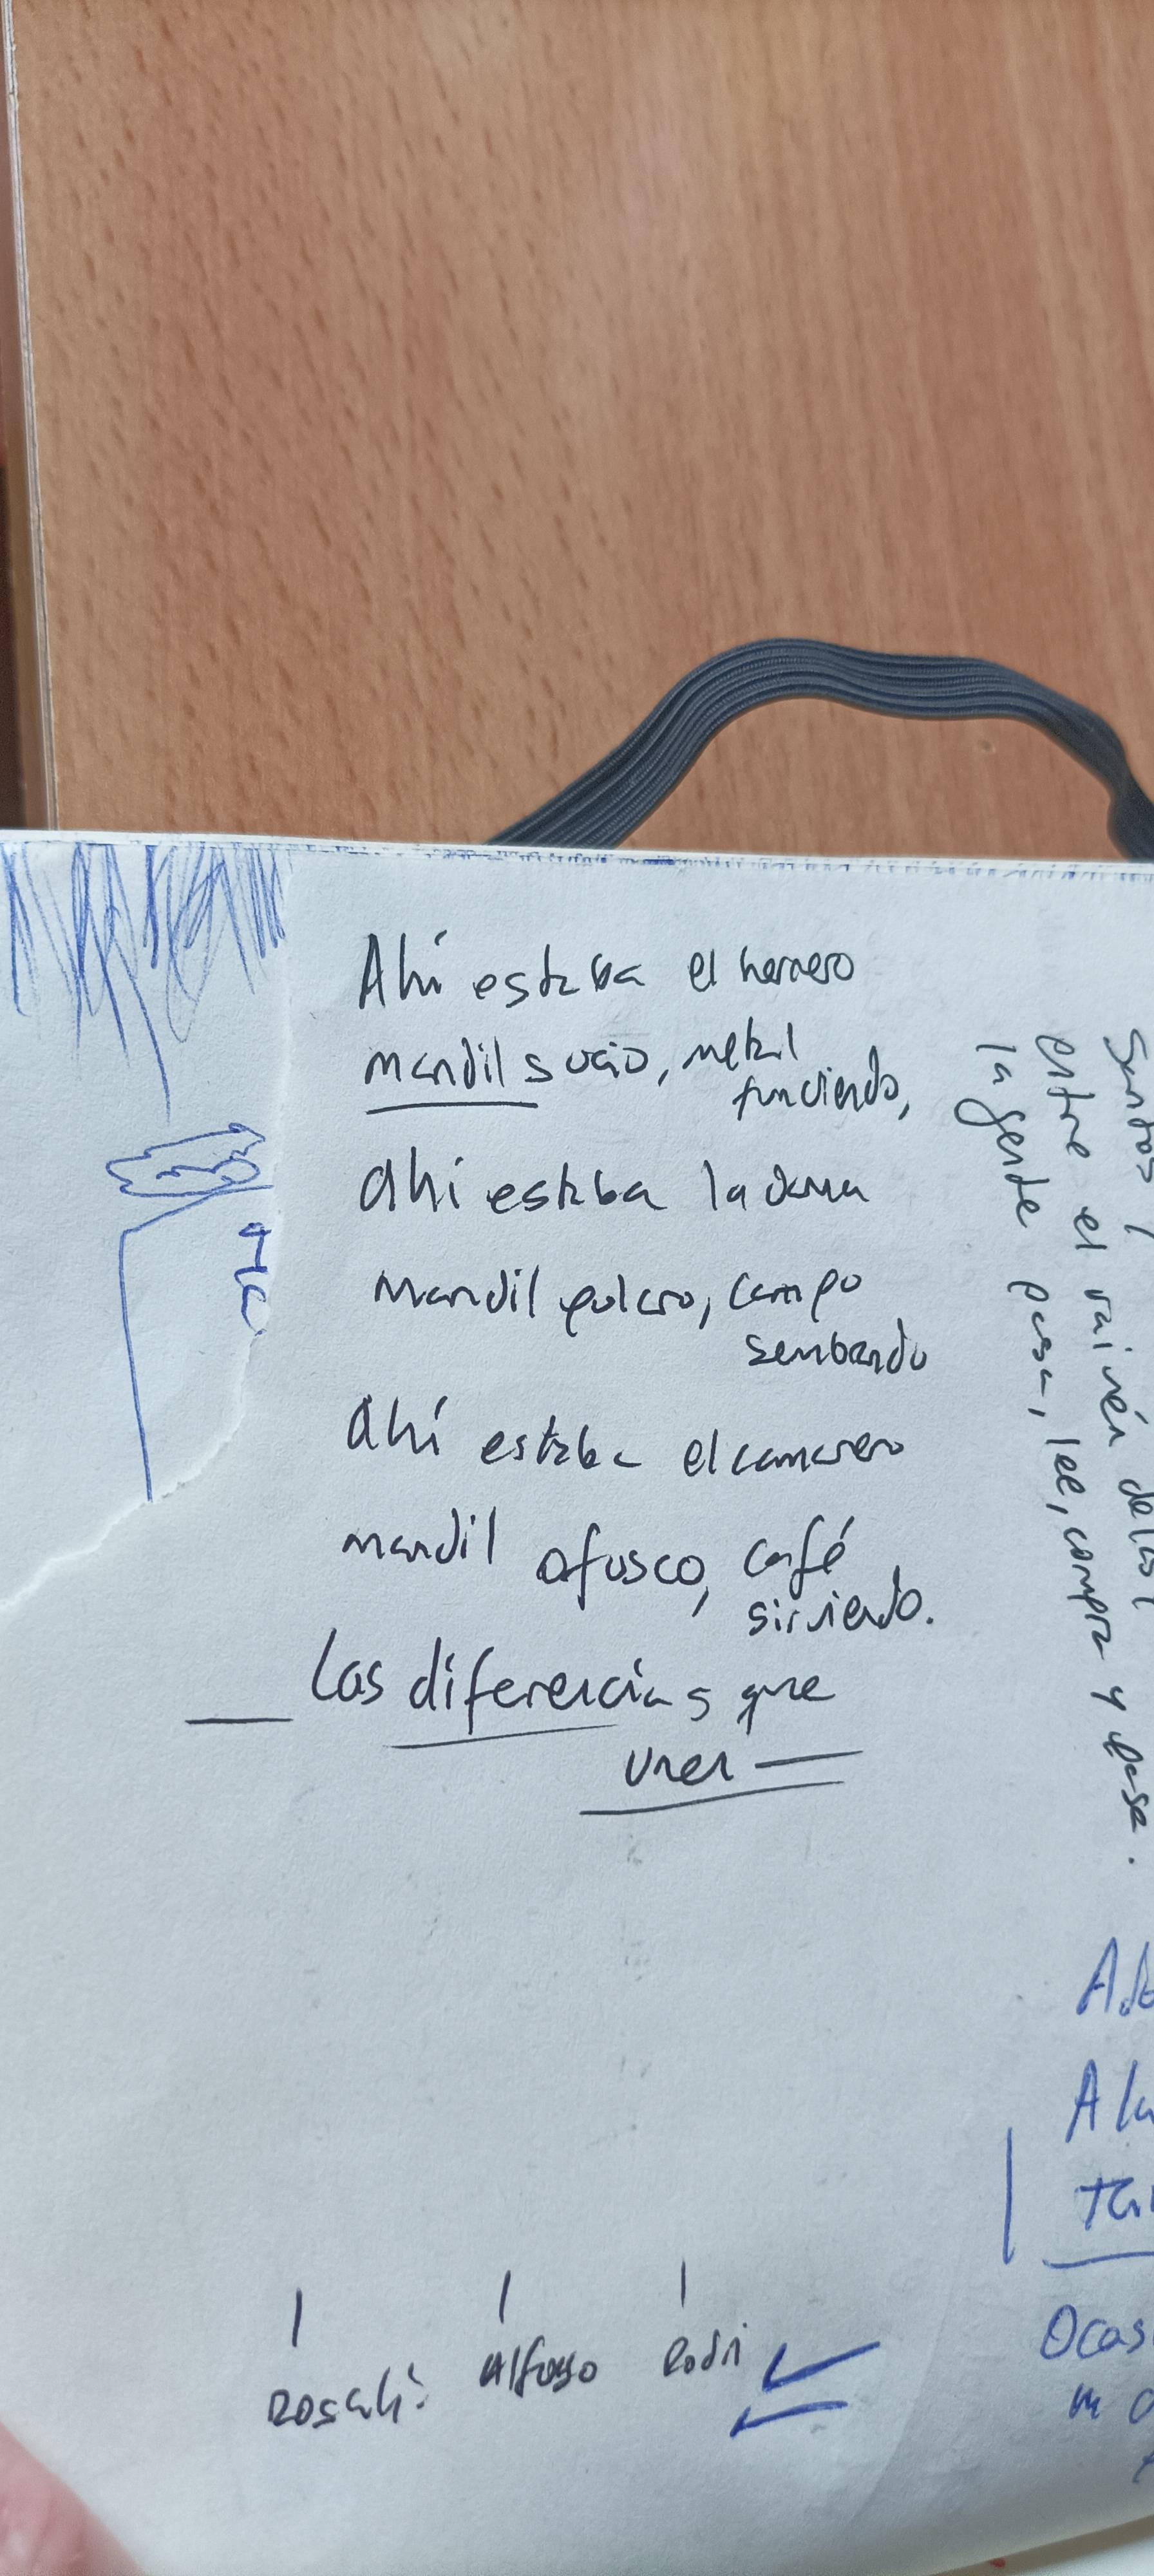 Ahí estaba el herrero
mandil sucio, metal
funciendo,
Ahí estaba la dama
mandil pulcro, campo
sembrando
Ahí estaba el camarero
mandil ofusco, café
sirviendo.
Las diferencias que
unen
entre el vaivén de
la gente pasa, lee, compra y posa.
Rosalí
Alfonso
Rodri